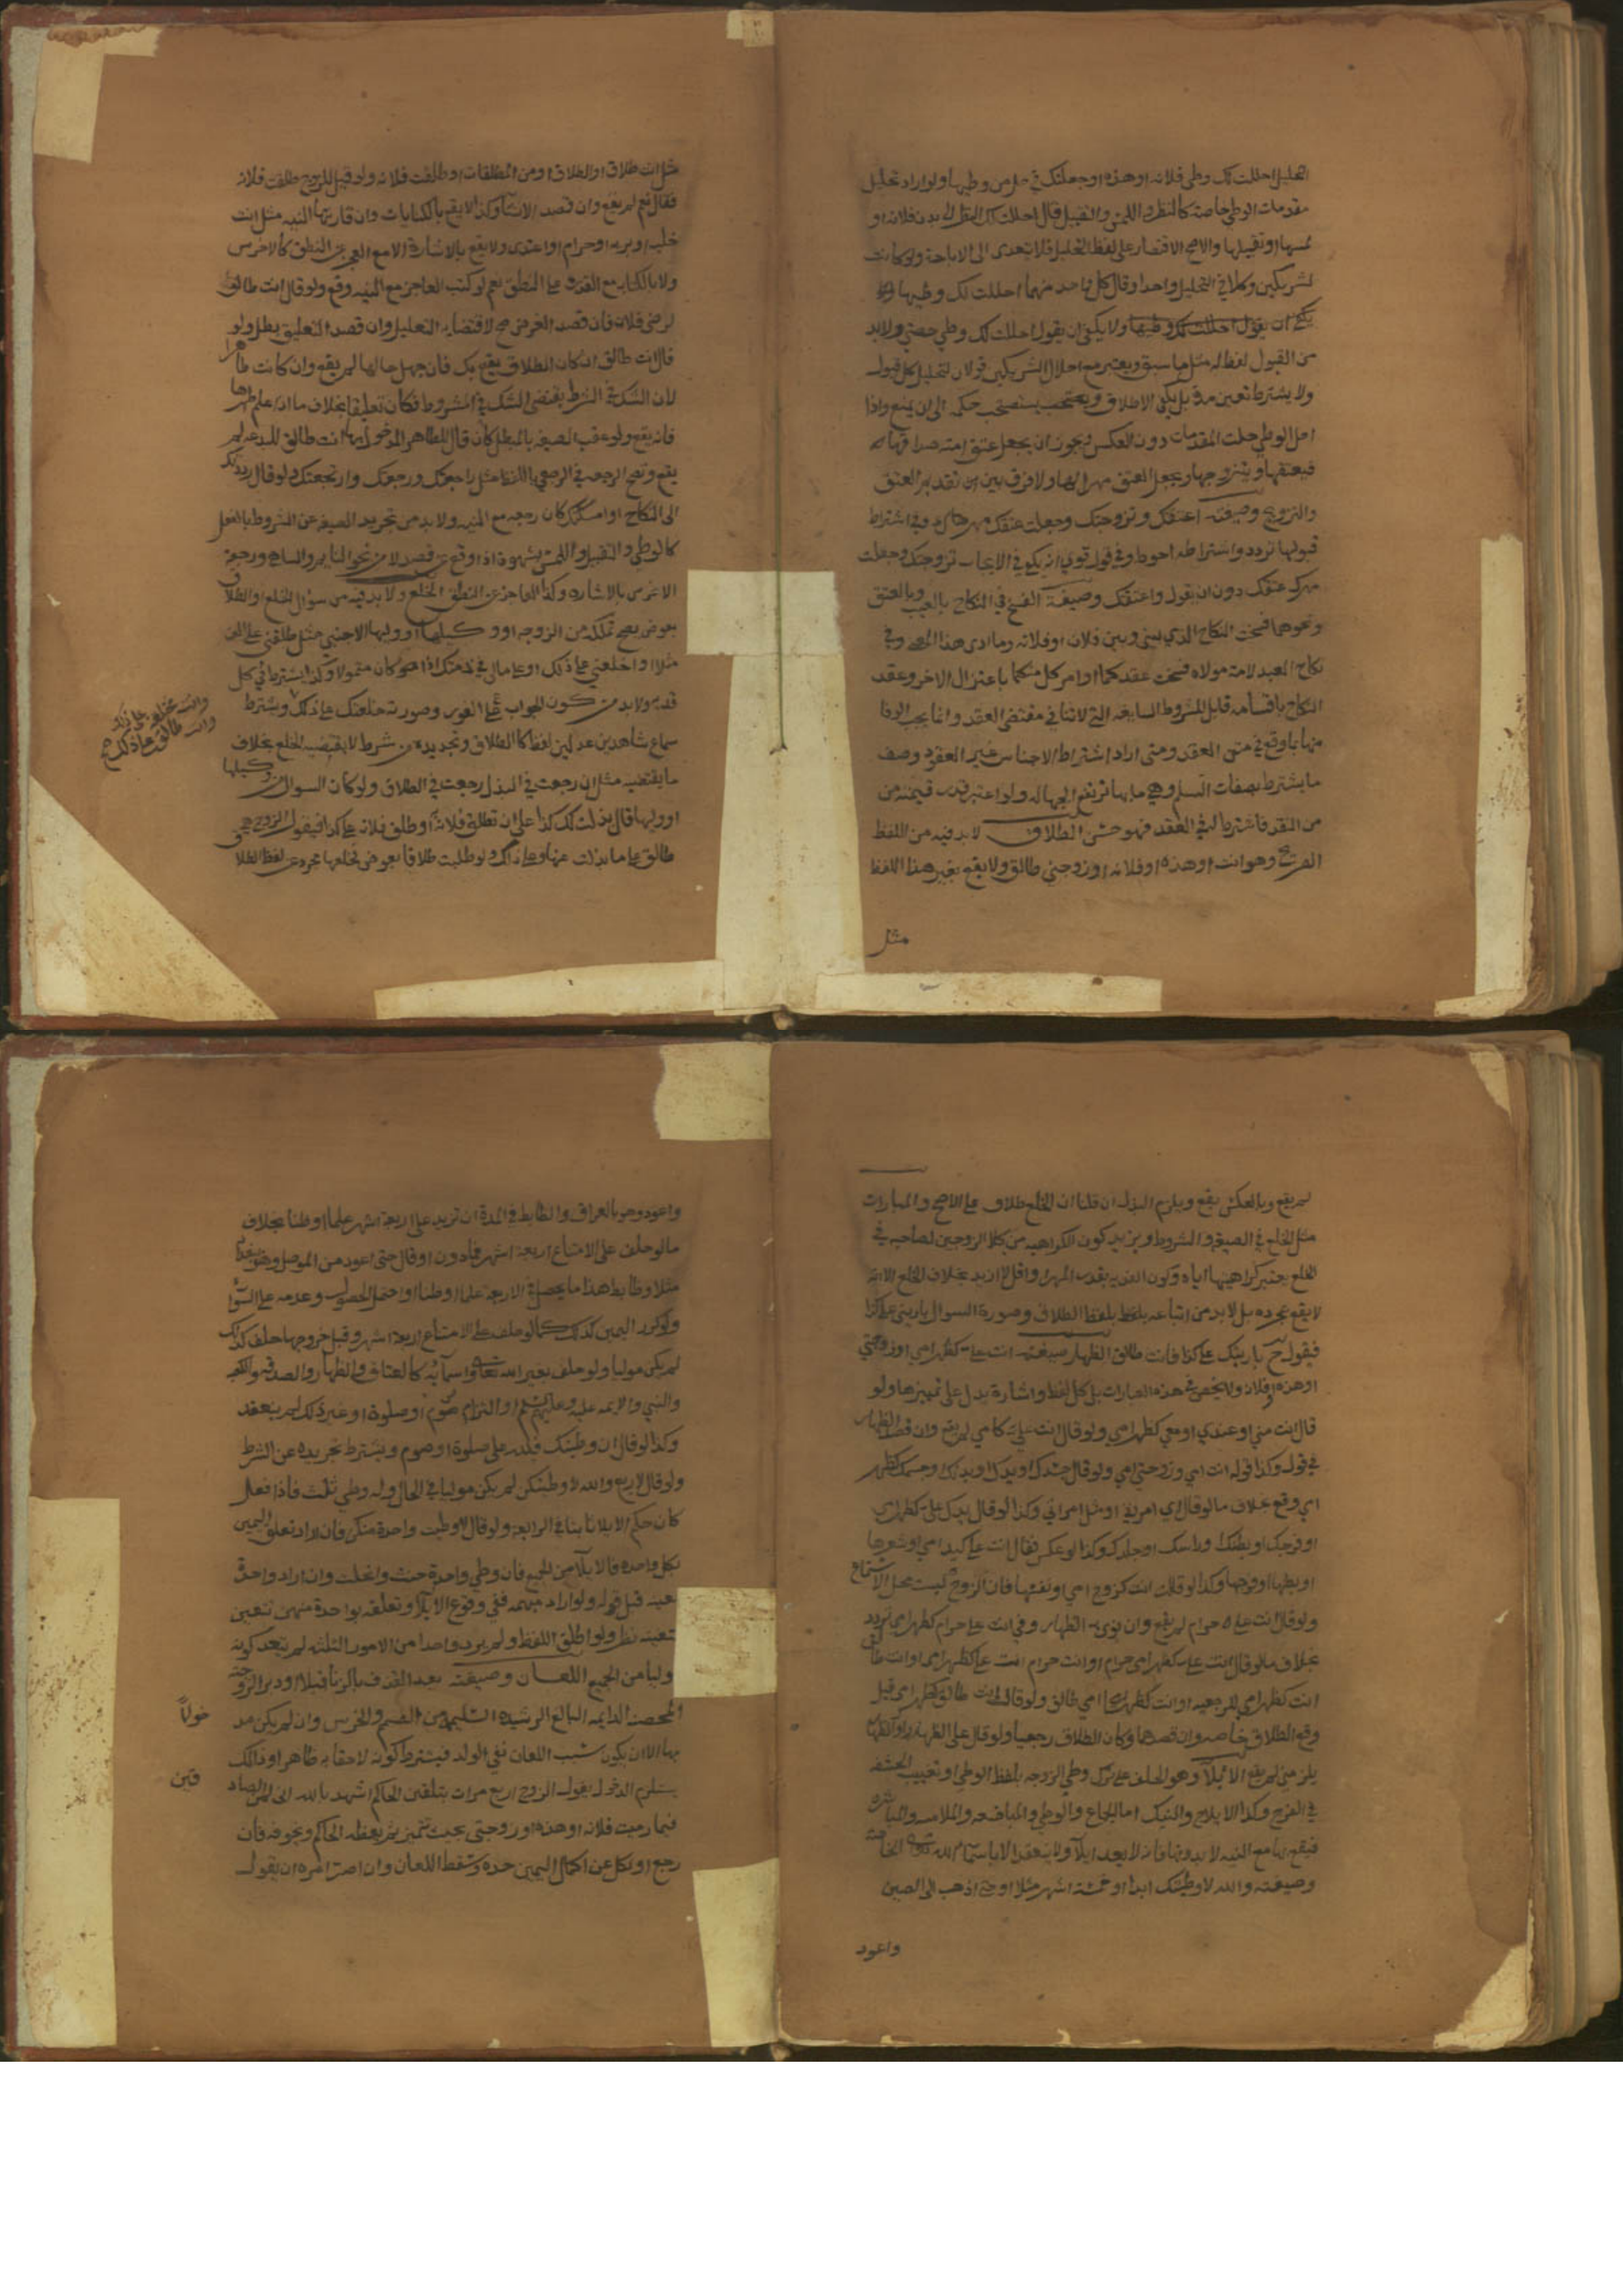 التحليل احللت لك وطي فلانه او هذه او جعلتك في حل من وطيها ولو اراد تحليل
مقدمات الوطي خاصة كالنظر و اللمس و التقبيل قال احللت لك النظر الى بدن فلانه او
لمسها او تقبيلها والاصح الاقتصار على لفظ التحليل فلا يتعدى الى الاباحة ولو كانت
لشريكين وكلا في التحليل واحدا وقال كل واحد منهما احللت لك وطيها
يكفي ان يقول احللت لك وطيها ولا يكفي ان يقول احللت لك وطي حصتي ولا بد
من القبول لفظا مثل ما سبق ويعتبر مع احلال الشريكين قولان لتحليل كل قبول
ولا يشترط تعيين مدة بل يكفي الاطلاق يستصحب حكمه الى ان يمنع واذا
احل الوطي حلت المقدمات دون العكس ويجوز ان يجعل عتق امته صداقها
فيعتقها ويتزوجها ويجعل العتق مهرا لها ولا فرق بين تقديم العتق
والتزويج وصيغته اعتقتك وتزوجتك وجعلت عتقك مهرك وفي اشتراط
قبولها تردد واشتراطه احوط وفي قول قوي انه يكفي في الايجاب تزوجتك وجعلت
مهرك عتقك دون ان يقول واعتقتك وصيغة الفسخ في النكاح بالعيب وبالعتق
ونحوهما فسخت النكاح الذي بيني وبين فلان او فلانه وما ادى هذا المعنى وفي
نكاح العبد لامة مولاه فسخت عقدكما او امر كل منكما باعتزال الاخر وعقد
النكاح باقسامه قابل للشروط السايغه التي لا تنافي مقتضى العقد وانما يجب الوفا
منها بما وقع في متن العقد ومتى اراد اشتراط الاجناس في العقد وصف
ما يشترط بصفات السلم وهي ما بها ترتفع الجهاله ولو اعتبر قدر قيمته من
من النقد فاشترط له في العقد فهو حسن الطلاق لا بد فيه من اللفظ
الصريح وهو انت او هذه او فلانه او زوجتي طالق ولا يقع بغير هذا اللفظ
مثل
مثل انت طلاق او الطلاق او من المطلقات او طلقت فلانه ولو قيل للزوج طلقت فلانه
فقال نعم لم يقع وان قصد الانشا وكذا لا يقع بالكنايات وان قارنتها النيه مثل انت
خليه او بريه او حرام او اعتدى ولا يقع بالاشارة الا مع العجز عن النطق كالاخرس
ولا بالكتابه مع القدرة على النطق نعم لو كتب العاجز مع النيه وقع ولو قال انت طالق
لرضى فلان فان قصد الغرض صح لاقتضائه التعليل وان قصد التعليق بطل ولو
قال انت طالق ان كان الطلاق يقع بك فان جهل حالها لم يقع وان كانت طاهرا
لان الشك في الشرط يقتضي الشك في المشروط فكان تعليقا بخلاف ما اذا علم طهرها
فانه يقع ولو عقب الصيغه بالمبطل كان قال للطاهر المدخول بها انت طالق للبدعه لم
يقع وتصح الرجعه في الرجعي باللفظ مثل راجعتك ورجعتك وارتجعتك ولو قال رددتك
الى النكاح او امسكتك كان رجعه مع النيه ولا بد من تجريد الصيغه عن الشروط بالفعل
كالوطي و التقبيل و اللمس بشهوة اذا وقع عن قصد لا من نحو النايم والساهي ورجعة
الاخرس بالاشاره وكذا العاجز عن النطق الخلع ولا بد فيه من سؤال الخلع او الطلاق
بعوض يصح تملكه من الزوجه او وكيلها او وليها لا الاجنبي مثل طلقني على الف
مثلا او اخلعني على ذلك او على مالي في ذمتك اذا كان متمولا وكذا يشترط في كل
فديه ولا بد من كون الجواب على الفور وصورته خلعتك على ذلك ويشترط
سماع شاهدين عدلين لفظا كالطلاق وتجريده من شرط لا يقتضيه الخلع بخلاف
ما يقتضيه مثل ان رجعت في البذل رجعت في الطلاق ولو كان السوال من وكيلها
او وليها قال بذلت لك كذا على ان تطلق فلانة او طلق فلانه على كذا فيقول الزوج هي
طالق على ما بذلت عنها وعلى ذلك ولو طلبت طلاقا بعوض فخلعها مجردا عن لفظ الطلاق
وانت مختلعة على ذلك
وانت طالق على ذلك صح
لم يقع وبالعكس يقع ويلزم البذل ان قلنا ان الخلع طلاق على الاصح و المبارات
مثل الخلع في الصيغه و الشروط ويزيد كون الكراهيه من كلا الزوجين لصاحبه في
الخلع يعتبر كراهيتها اياه وكون الفديه بقدر المهر او اقل لا ازيد بخلاف الخلع الا انه
لا يقع بمجرده بل لا بد من اتباعه بلفظ الطلاق وصورة السوال بارئني على كذا
فيقول ح بارئتك على كذا فانت طالق الظهار صيغته انت علي كظهر امي او زوجتي
او هذه او فلانه ولا ينحصر في هذه العبارات بل كل لفظ واشارة يدل على تميزها ولو
قال انت مني او عندي او معي كظهر امي ولو قال انت علي كامي لم يقع وان قصد الظهار
في قول وكذا قوله انت امي وزوجتي امي ولو قال جثتك او يدك او بدنك وجسمك كظهر
امي وقع بخلاف ما لو قال امي امراتي او مثل امراتي وكذا لو قال يدك علي كظهر امي
او فرجك او بطنك او راسك او جلدك وكذا لو عكس فقال انت علي كيد امي او شعرها
او بطنها او فرجها وكذا لو قال انت كزوج امي او نفسها فان الزوج ليست محل الاستمتاع
ولو قال انت علي حرام لم يقع وان نوى به الظهار وفي انت علي حرام كظهر امي تردد
بخلاف ما لو قال انت علي كظهر امي حرام او انت حرام انت علي كظهر امي او انت طالق
انت كظهر امي للرجعيه او انت كظهر امي طالق ولو قال انت طالق كظهر امي قيل
وقع الطلاق خاصه وان قصدهما وكان الطلاق رجعيا ولو قال علي الظهار او الظهار
يلزمني لم يقع الايلا وهو الحلف على ترك وطي الزوجه بلفظ الوطي او تغييب الحشفه
في الفرج وكذا الايلاج والنيك اما الجماع والوطي والمباضعه والملامسه والمباشره
فيقع بها مع النيه لا بدونها فانه لا يعد ايلآ ولا ينعقد الا باسمآ الله تعالى الخاصة
وصيغته والله لا وطئتك ابدا او خمسة اشهر مثلا او حتى اذهب الى الصين
واعود
واعود وهو بالعراق والضابط في المدة ان تزيد على اربعة اشهر علما او ظنا بخلاف
ما لو حلف على الامتناع اربعة اشهر فما دون او قال حتى اعود من الموصل وهو ببغداد
مثلا وضابط هذا ما يحصل في الاربعة علما او ظنا او احتمل الحصول وعدمه على السوآ
ولو كرر اليمين كذلك كما لو حلف على الامتناع اربعة اشهر وقبل خروجها حلف كذلك
لم يكن موليا ولو حلف بغير الله تعالى واسمآئه كالعتاق و الظهار والصدقه والكعبه
والنبي والايمه عليه وعليهم السلم او التزام صوم او صلوة او غير ذلك لم ينعقد
وكذا لو قال ان وطئتك فلله علي صلوة او صوم ويشترط تجريده عن الشرط
ولو قال لاربع والله لا وطئتكن لم يكن موليا في الحال وله وطي ثلث فاذا فعل
كان حكم الايلا ثابتا في الرابعة ولو قال لا وطيت واحدة منكن فان اراد تعلق اليمين
بكل واحده فالايلآ من الجميع فان وطي واحدة حنث وانحلت وان اراد واحدة
معينه قبل قوله ولو اراد مبهمه ففي وقوع الايلآ وتعلقه بواحدة منهن تتعين
بتعيينه نظر ولو اطلق اللفظ ولم يرد واحدا من الامور الثلثه لم يبعد كونه
موليا من الجميع اللعان وصيغته بعد القذف بالزنا قبلا او دبرا لزوجته
المحصنه الدايمه البالغ الرشيده السليمه من الصمم والخرس وان لم يكن مد
خولاً
بها الا ان يكون سبب اللعان نفي الولد فيشترط كونه لاحقا به ظاهرا وذلك
يستلزم الدخول يقول الزوج اربع مرات بتلقين الحاكم اشهد بالله اني لمن الصاد
قين
فيما رميت فلانه او هذه او زوجتي بحيث تتميز ثم يعظه الحاكم ويخوفه فان
رجع او نكل عن اكمال اليمين حده وسقط اللعان وان اصر امره ان يقول